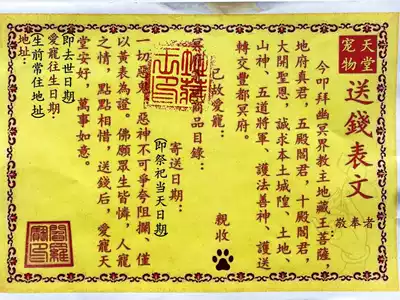 天堂
宠物
送錢表文
敬奉者
今叩拜幽冥界教主地藏王菩薩
地府真君，五殿閻君，十殿閻君，
大開聖恩，誠求本土城隍、土地、
山神、五道將軍、護法善神、護送
轉交酆都冥府。
己故愛寵：
親收
商品目錄：
寄送日期：
即祭祀当天日期
一切惡鬼、惡神不可爭夸阻攔、僅
以黃表為證。佛願眾生皆憐，人寵
之情，點點相惜，送錢后，愛寵天
堂安好，萬事如意。
愛寵往生日期：
即去世日期
地址：
生前常住地址